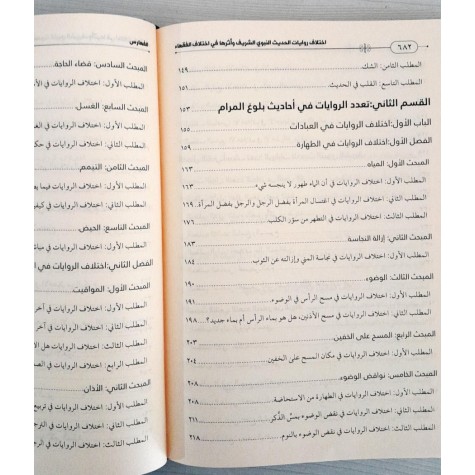 اختلاف روايات الحديث النبوي الشريف وأثرها في اختلاف الفقهاء
٦٨٢
المطلب الثامن: الشك ١٤٩
المطلب التاسع: القلب في الحديث. ١٥١
القسم الثاني:تعدد الروايات في أحاديث بلوغ المرام ١٥٣
الباب الأول:اختلاف الروايات في العبادات ١٥٥
الفصل الأول:اختلاف الروايات في الطهارة ١٥٩
المبحث الأول: المياه ١٦٣
المطلب الأول: اختلاف الروايات في أن الماء طهور لا ينجسه شيء. ١٦٣
المطلب الثاني: اختلاف الروايات في اغتسال المرأة بفضل الرجل والرجل بفضل المرأة. ١٦٩
المطلب الثالث: اختلاف الروايات في التطهر من سؤر الكلب ١٧٦
المبحث الثاني: إزالة النجاسة ١٨٣
المطلب الأول: اختلاف الروايات في نجاسة المني وإزالته عن الثوب.
المبحث الثالث: الوضوء ١٩٠
المطلب الأول: اختلاف الروايات في مسح الرأس في الوضوء.
المطلب الثاني: اختلاف الروايات في مسح الأذنين، هل هو بماء الرأس أم بماء جديد؟ ١٩٨
المبحث الرابع: المسح على الخفين ٢٠٣
المطلب الأول: اختلاف الروايات في مكان المسح على الخفين ٢٠٤
المبحث الخامس: نواقض الوضوء ٢٠٨
المطلب الأول: اختلاف الروايات في الطهارة من الاستحاضة ٢٠٨
المطلب الثاني: اختلاف الروايات في نقض الوضوء بمسّ الذَّكر ٢١١
المطلب الثالث: اختلاف الروايات في نقض الوضوء بالنوم. ٢١٨
الفهارس
المبحث السادس: قضاء الحاجة.
المطلب الأول: اختلاف الروايات في
المبحث السابع: الغسل
المطلب الثاني: اختلاف الروايات في
المبحث الثامن: التيمم
المطلب الأول: اختلاف الروايات فيما
المطلب الثاني: اختلاف الروايات في
المبحث التاسع: الحيض
المطلب الأول: اختلاف الروايات في
الفصل الثاني:اختلاف الروايات في
المبحث الأول: المواقيت
المطلب الأول: اختلاف الروايات في آخر
المطلب الثاني: اختلاف الروايات في آخر
المطلب الثالث: اختلاف الروايات هل
المطلب الرابع: اختلاف الروايات في
المبحث الثاني: الأذان
المطلب الأول: اختلاف الروايات في تربيع
المطلب الثاني: اختلاف الروايات في
المطلب الثالث: اختلاف الروايات في